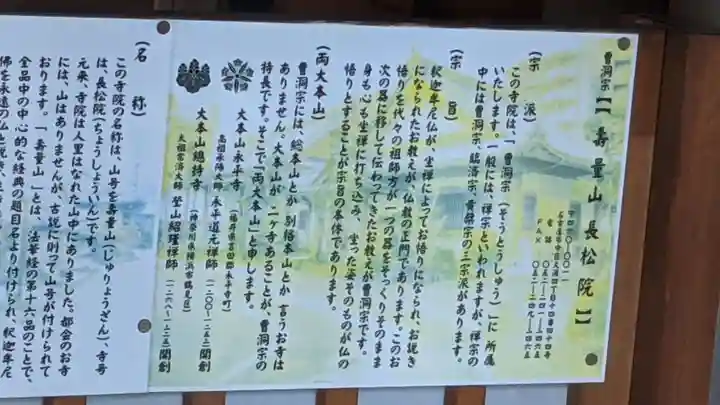 曹洞宗【壽量山 長松院】
〒四六〇-〇〇一一
名古屋市中区大須四丁目十四番四十四号
電話 〇五二-二四一-四六五
FAX 〇五二-二四九-四六
(宗 派)
この寺院は、「曹洞宗(そうとうしゅう)」に所属
いたします。一般には、禅宗といわれますが、禅宗の
中には曹洞宗、臨済宗、黄檗宗の三宗派があります。
(宗 旨)
釈迦牟尼仏が、坐禅によってお悟りになられ、お説き
になられたお教えが、仏教の正門であります。このお
悟りを代々の祖師方が一つの器をそっくりそのまま
次の器に移して伝わってきたお教えが曹洞宗です。
身も心も坐禅に打ち込み、坐った姿そのものが仏の
悟りとすることが宗旨の本体であります。
(両大本山)
曹洞宗には、総本山とか別格本山とか言うお寺は
ありません。大本山が二ヶ寺あることが、曹洞宗の
特長です。そこで「両大本山」と申します。
大本山永平寺(福井県吉田郡永平寺町)
高祖承陽大師 永平道元禅師(一二〇〇〜一二五三)開創
大本山總持寺(神奈川県横浜市鶴見区)
太祖常済大師 瑩山紹瑾禅師(一二六八〜一三二五)開創
(名 称)
この寺院の名称は、山号を壽量山(じゅりょうざん)、寺号
は、長松院(ちょうしょういん)です。
元来、寺院は人里はなれた山中にありました。都会のお寺
には、山はありませんが、古説に則って山号が付けられて
おります。「壽量山」とは、法華経の第十六品のことで、
全品中の中心的な経典の題目名より付けられ、釈迦牟尼
佛を永遠の仏と説き